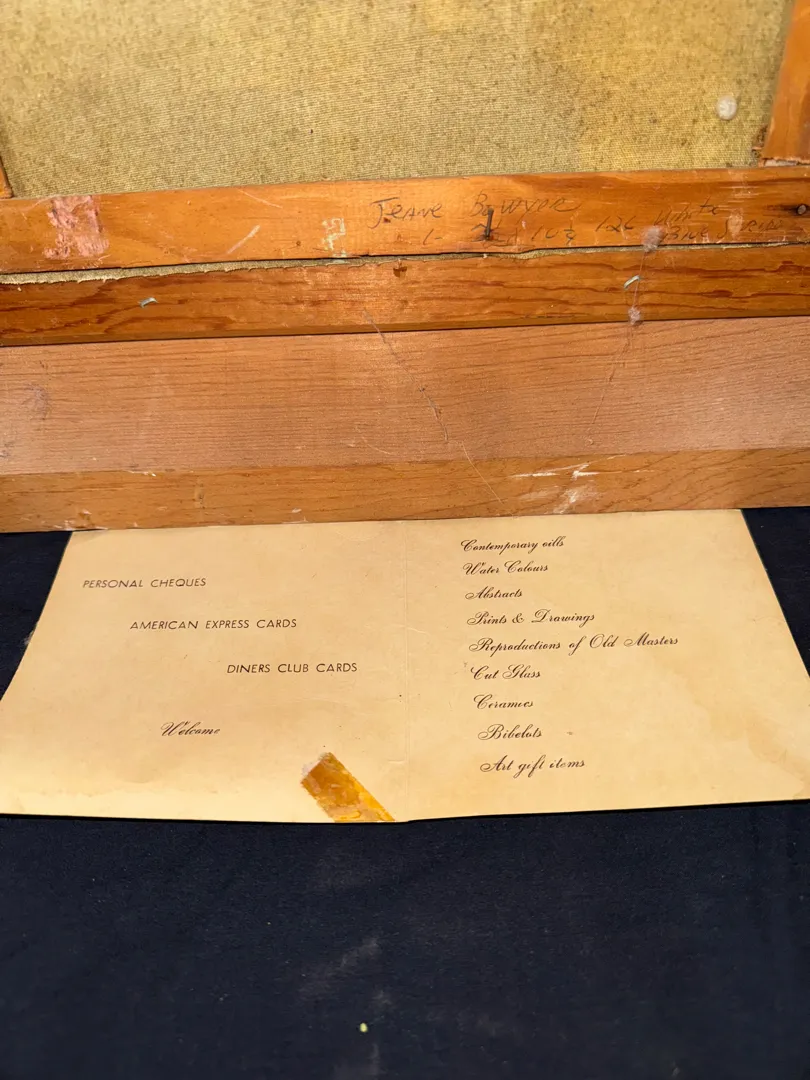 Jeane Bowyer
White
PERSONAL CHEQUES
AMERICAN EXPRESS CARDS
DINERS CLUB CARDS
Welcome
Contemporary oills
Water Colours
Abstracts
Prints & Drawings
Reproductions of Old Masters
Cut Glass
Ceramics
Bibelots
Art gift items